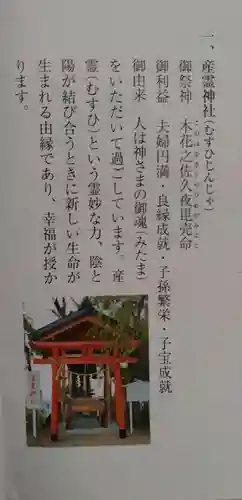 一、産霊神社(むすひじんじゃ)
御祭神 木花之佐久夜毘売命
このはなのさくやびめのみこと
御利益 夫婦円満・良縁成就・子孫繁栄・子宝成就
御由来 人は神さまの御魂(みたま)
をいただいて過ごしています。産
霊(むすひ)という霊妙な力、陰と
陽が結び合うときに新しい生命が
生まれる由縁であり、幸福が授か
ります。